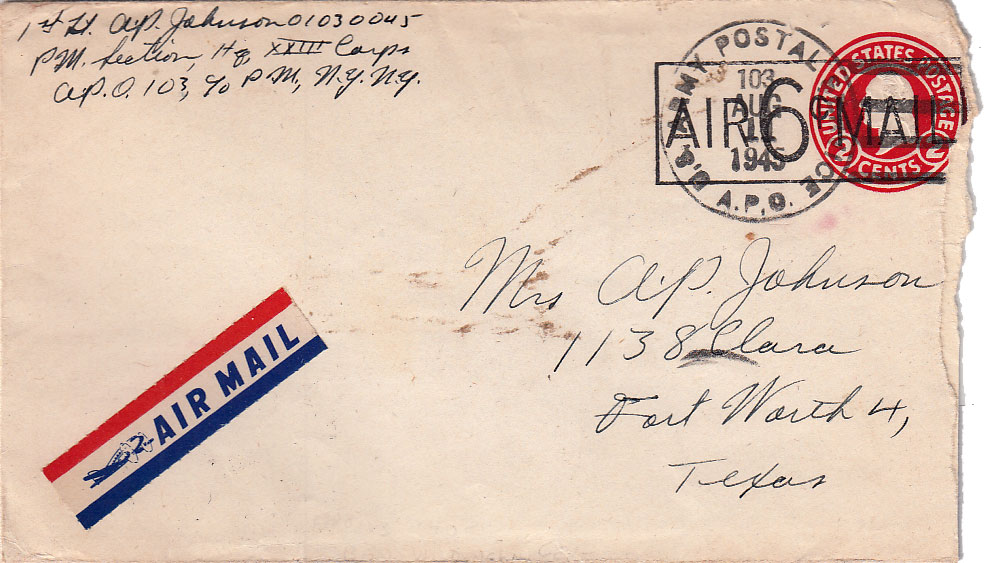 1st Lt. A.P. Johnson 01030045
P.M. Section, Hq XXIII Corps
A.P.O. 103, c/o P.M., N.Y. N.Y.
U.S. ARMY POSTAL
103
AUG
11
1945
A.P.O.
AIR 6¢ MAIL
UNITED STATES POSTAGE
2 CENTS 2
Mrs A.P. Johnson
1138 Clara
Fort Worth 4,
Texas
AIR MAIL